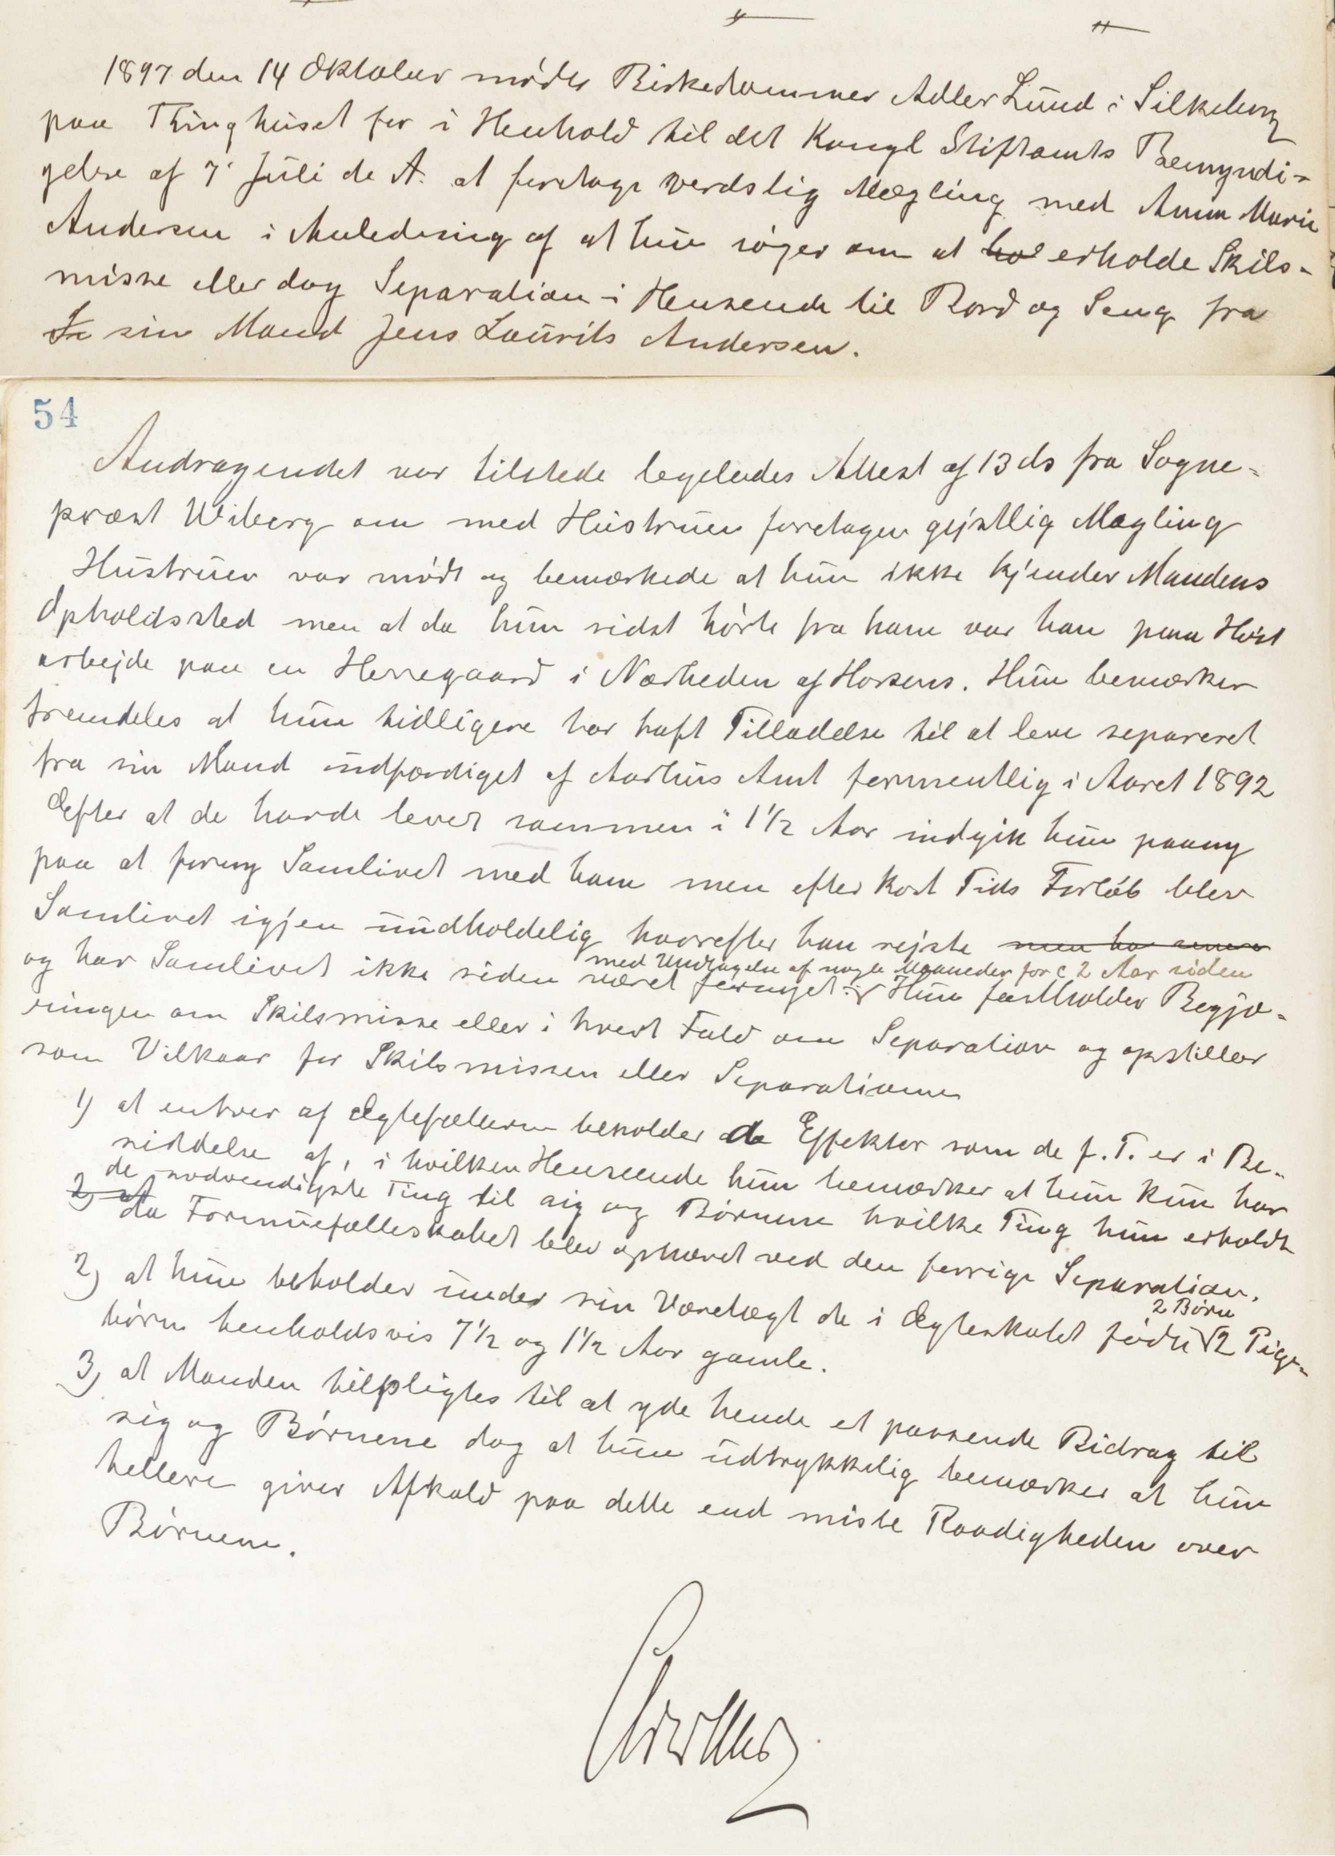 1897 den 14 Oktober mødte Birkedommer Adler Lund i Silkeborg
paa Thinghuset for i Henhold til det Kongl Stiftamts Bemyndi=
gelse af 7' Juli d. A. at foretage verdslig Mægling med Anna Marie
Andersen i Anledning af at hun søger om at ho erholde Skils=
misse eller dog Separation i Henseende til Bord og Seng fra
Je sin Mand Jens Laurits Andersen.
54
Andragendet var tilstede ligeledes Attest af 13 ds fra Sogne=
præst Wiberg om med Hustruen foretagen gejstlig Mægling
Hustruen var mødt og bemærkede at hun ikke kjender Mandens
Opholdssted men at da hun sidst hørte fra ham var han paa Høst
arbejde paa en Herregaard i Nærheden af Horsens. Hun bemærker
fremdeles at hun tidligere har haft Tilladelse til at leve separeret
fra sin Mand udfærdiget af Aarhus Amt formentlig i Aaret 1892
Efter at de havde levet sammen i 1½ Aar indgik hun paany
paa at forny Samlivet med ham men efter kort Tids Forløb blev
Samlivet igjen uudholdelig hvorefter han rejste men har senere
med Undtagelse af nogle Maaneder for c 2 Aar siden
og har Samlivet ikke siden været fornyet. Hun fastholder Begjæ=
ringen om Skilsmisse eller i hvert Fald om Separation og opstiller
som Vilkaar for Skilsmissen eller Separationen
1) at enhver af Ægtefællerne beholder de Effekter som de f. T. er i Be=
siddelse af, i hvilken Henseende hun bemærker at hun kun har
de nødvendigste Ting til sig og Børnene hvilke Ting hun erholdt
2) at da Formuefælleskabet blev ophævet ved den forrige Separation.
2) at hun beholder under sin Væretægt de i Ægteskabet fødte 2 Pige=
2 Børn
børn henholdsvis 7½ og 1½ Aar gamle.
3) at Manden tilpligtes til at yde hende et passende Bidrag til
sig og Børnene dog at hun udtrykkelig bemærker at hun
hellere giver Afkald paa dette end miste Raadigheden over
Børnene.